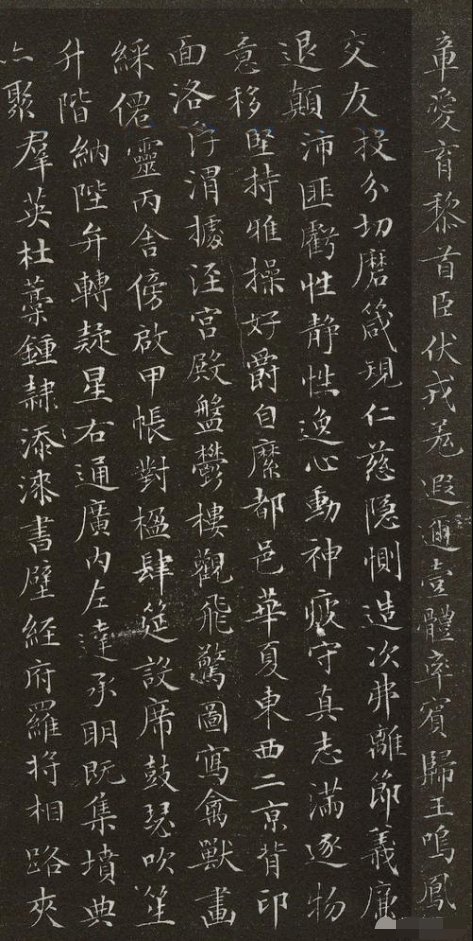 章愛育黎首臣伏戎羌遐邇壹體率賓歸王鳴鳳
交友投分切磨箴規仁慈隱惻造次弗離節義廉
退顛沛匪虧性静情逸心動神疲守真志滿逐物
意移堅持雅操好爵自縻都邑華夏東西二京背邙
面洛浮渭據涇宮殿盤鬱樓觀飛驚圖寫禽獸畫
綵僊靈丙舍傍啟甲帳對楹肆筵設席鼓瑟吹笙
升階納陛弁轉疑星右通廣內左達承明既集墳典
亦聚羣英杜藁鍾隷添漆書壁經府羅將相路夾